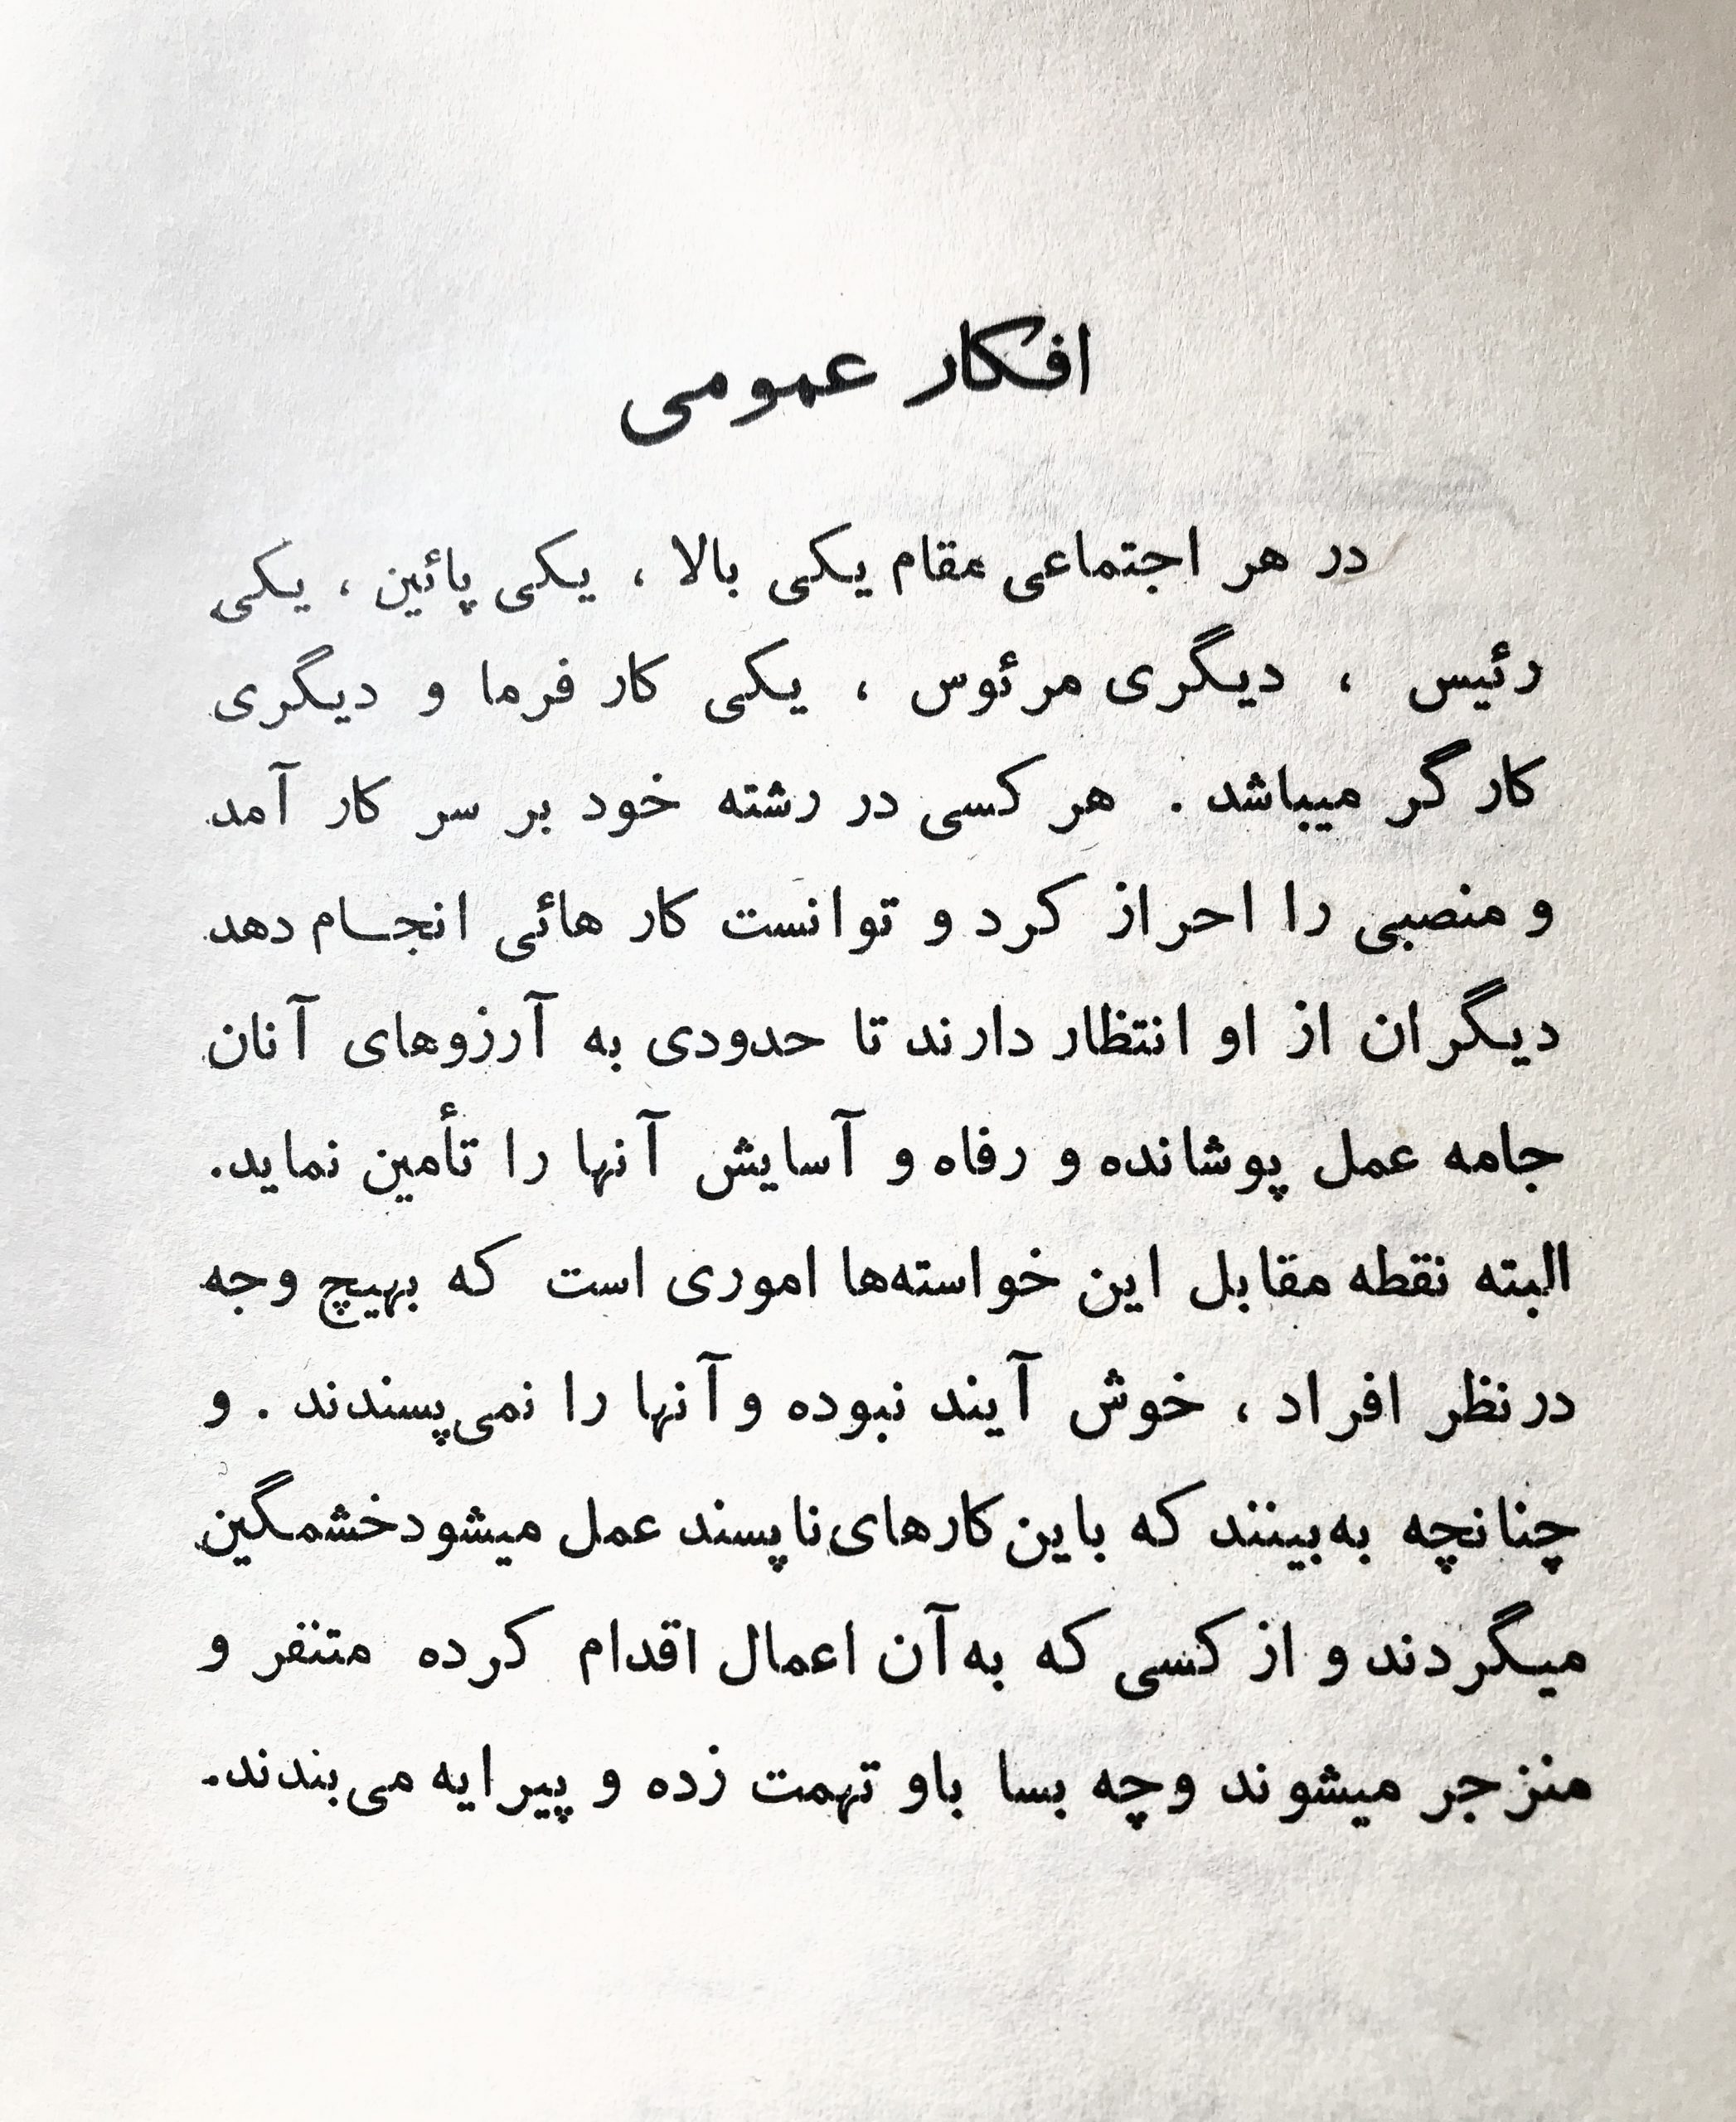 افکار عمومی
در هر اجتماعی مقام یکی بالا ، یکی پائین ، یکی
رئیس ، دیگری مرئوس ، یکی کار فرما و دیگری
کار گر میباشد . هر کسی در رشته خود بر سر کار آمد
و منصبی را احراز کرد و توانست کار هائی انجام دهد
دیگران از او انتظار دارند تا حدودی به آرزوهای آنان
جامه عمل پوشانده و رفاه و آسایش آنها را تأمین نماید.
البته نقطه مقابل این خواسته‌ها اموری است که بهیچ وجه
درنظر افراد ، خوش آیند نبوده و آنها را نمی‌پسندند . و
چنانچه به‌بینند که باین کارهای ناپسند عمل میشود خشمگین
میگردند و از کسی که به آن اعمال اقدام کرده متنفر و
منزجر میشوند وچه بسا باو تهمت زده و پیرایه می‌بندند.